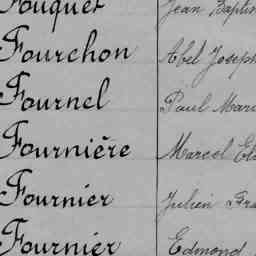 Fouquet Jean Baptis
Fourchon Abel Joseph
Fournel Paul Mari
Fournière Marcel
Fournier Julien Fra
Fournier Edmond